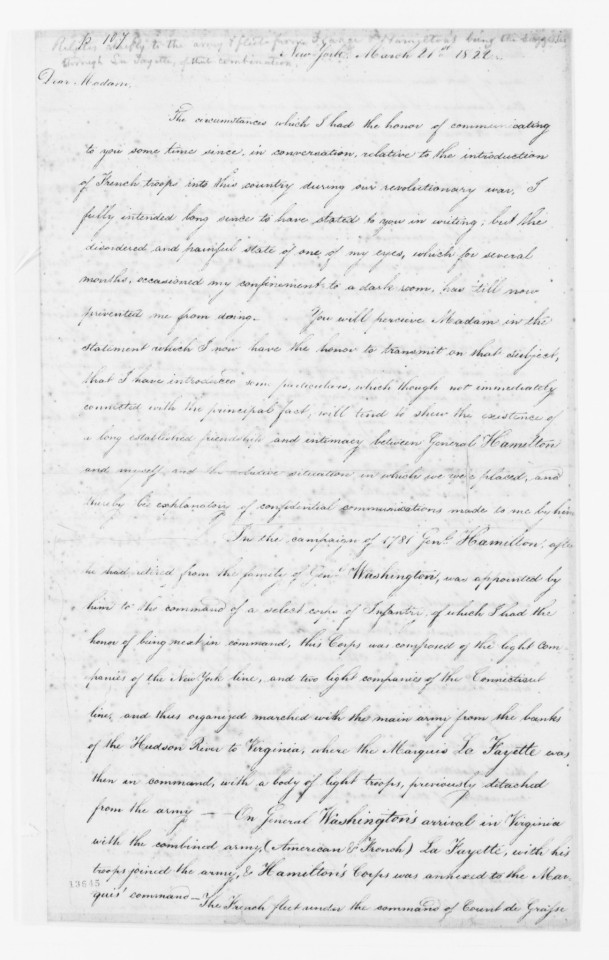 p 107
Relates chiefly to the army & fleet from France & Hamilton's being the suggester
through La Fayette, of that combination.
New York March 21st 1822.
Dear Madam,
The circumstances which I had the honor of communicating
to you some time since, in conversation, relative to the introduction
of French troops into this country during our revolutionary war, I
fully intended long since to have stated to you in writing; but the
disordered and painful state of one of my eyes, which for several
months, occasioned my confinement to a dark room, has 'till now
prevented me from doing. You will perceive Madam in the
statement which I now have the honor to transmit on that subject,
that I have introduced some particulars, which though not immediately
connected with the principal fact, will tend to shew the existence of
a long established friendship and intimacy between General Hamelton
and myself and the relative situation in which we were placed, and
thereby be explanatory of confidential communications made to me by him
In the campaign of 1781 Genl. Hamelton, after
he had retired from the family of Genl. Washington, was appointed by
him to the command of a select corps of Infantry, of which I had the
honor of being next in command, this Corps was composed of the light Com-
panies of the New York line, and two light companies of the Connecticut
line, and thus organized marched with the main army from the banks
of the Hudson River to Virginia, where the Marquis La Fayette was
then in command, with a body of light troops, previously detached
from the army — On General Washington's arrival in Virginia
with the combined army, (American & French) La Fayette, with his
troops joined the army, & Hamelton's Corps was annexed to the Mar-
quis' command — The French fleet under the command of Count de Grasse
13645